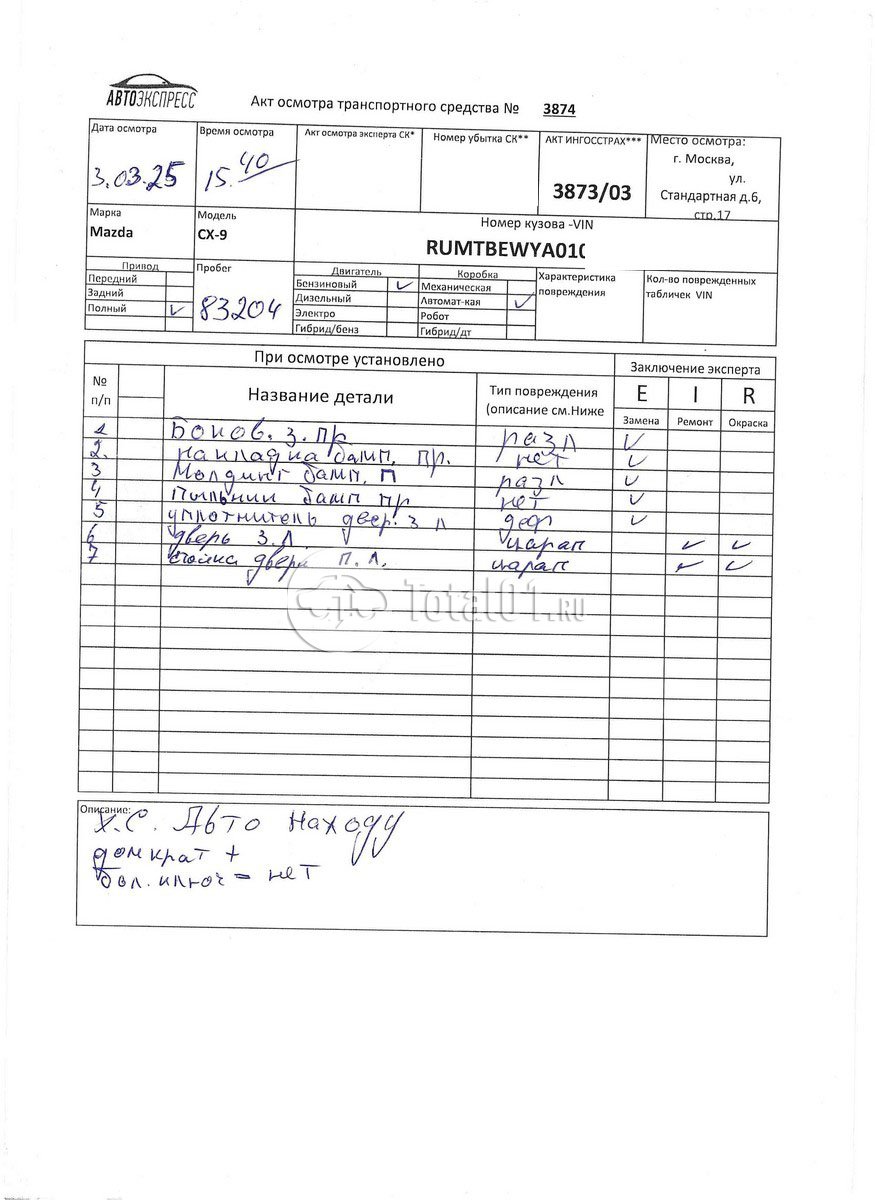 АВТОЭКСПРЕСС
Акт осмотра транспортного средства № 3874
Дата осмотра
3.03.25
Время осмотра
15.40
Акт осмотра эксперта СК*
Номер убытка СК**
АКТ ИНГОССТРАХ***
3873/03
Место осмотра:
г. Москва,
ул.
Стандартная д.6,
стр.17
Марка
Mazda
Модель
CX-9
Номер кузова -VIN
RUMTBEWYA01
Привод
Передний
Задний
Полный ✓
Пробег
83204
Двигатель
Бензиновый ✓
Дизельный
Электро
Гибрид/бенз
Коробка
Механическая
Автомат-кая ✓
Робот
Гибрид/дт
Характеристика
повреждения
Кол-во поврежденных
табличек VIN
При осмотре установлено
Заключение эксперта
№
п/п
Название детали
Тип повреждения
(описание см.Ниже
E I R
Замена Ремонт Окраска
1 Боков. з. пр разл ✓
2. накладка бамп. пр. нет ✓
3 Молдинг бамп. П разл ✓
4 Пыльник бамп пр нет ✓
5 уплотнитель двер. З Л деф ✓
6 дверь З.Л царап ✓ ✓
7 стойка двери П.Л. царап ✓ ✓
Total01.RU
Описание:
Х.С. Авто находу
домкрат +
бал. ключ = нет